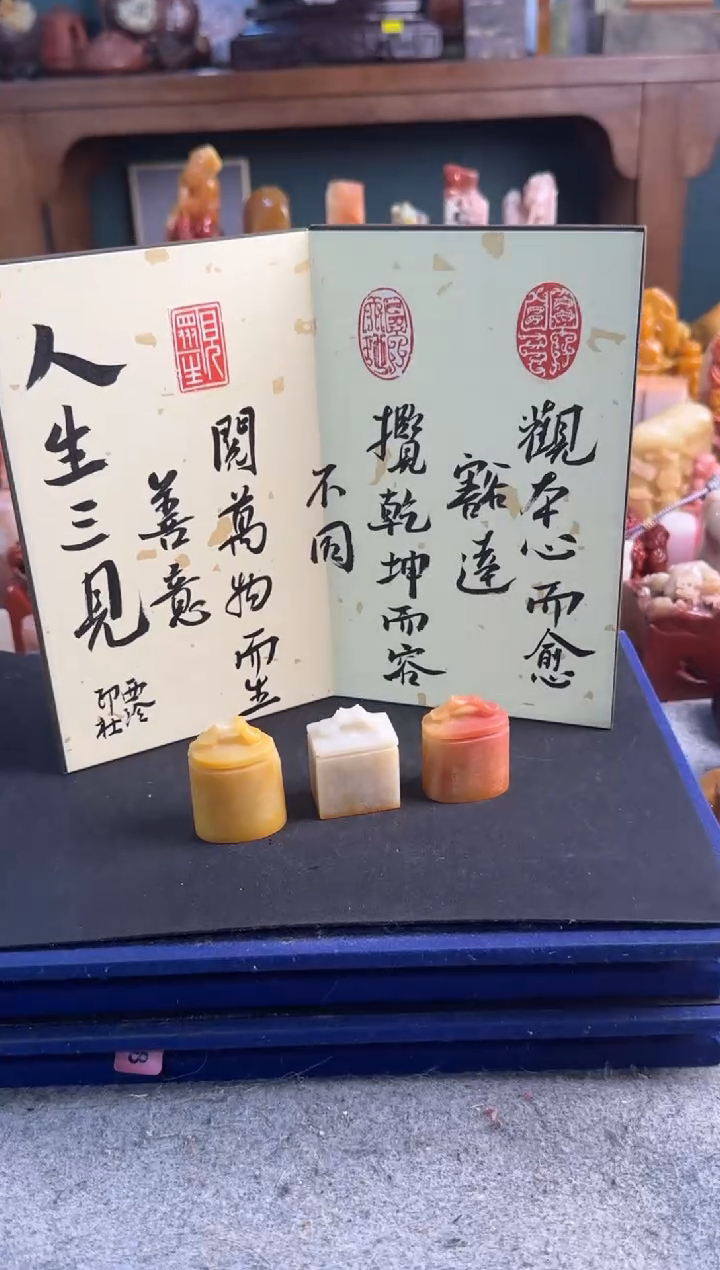 觀本心而愈
豁達
攬乾坤而容
不同
見眾生
閱萬物而生
善意
人生三見
西泠
印社